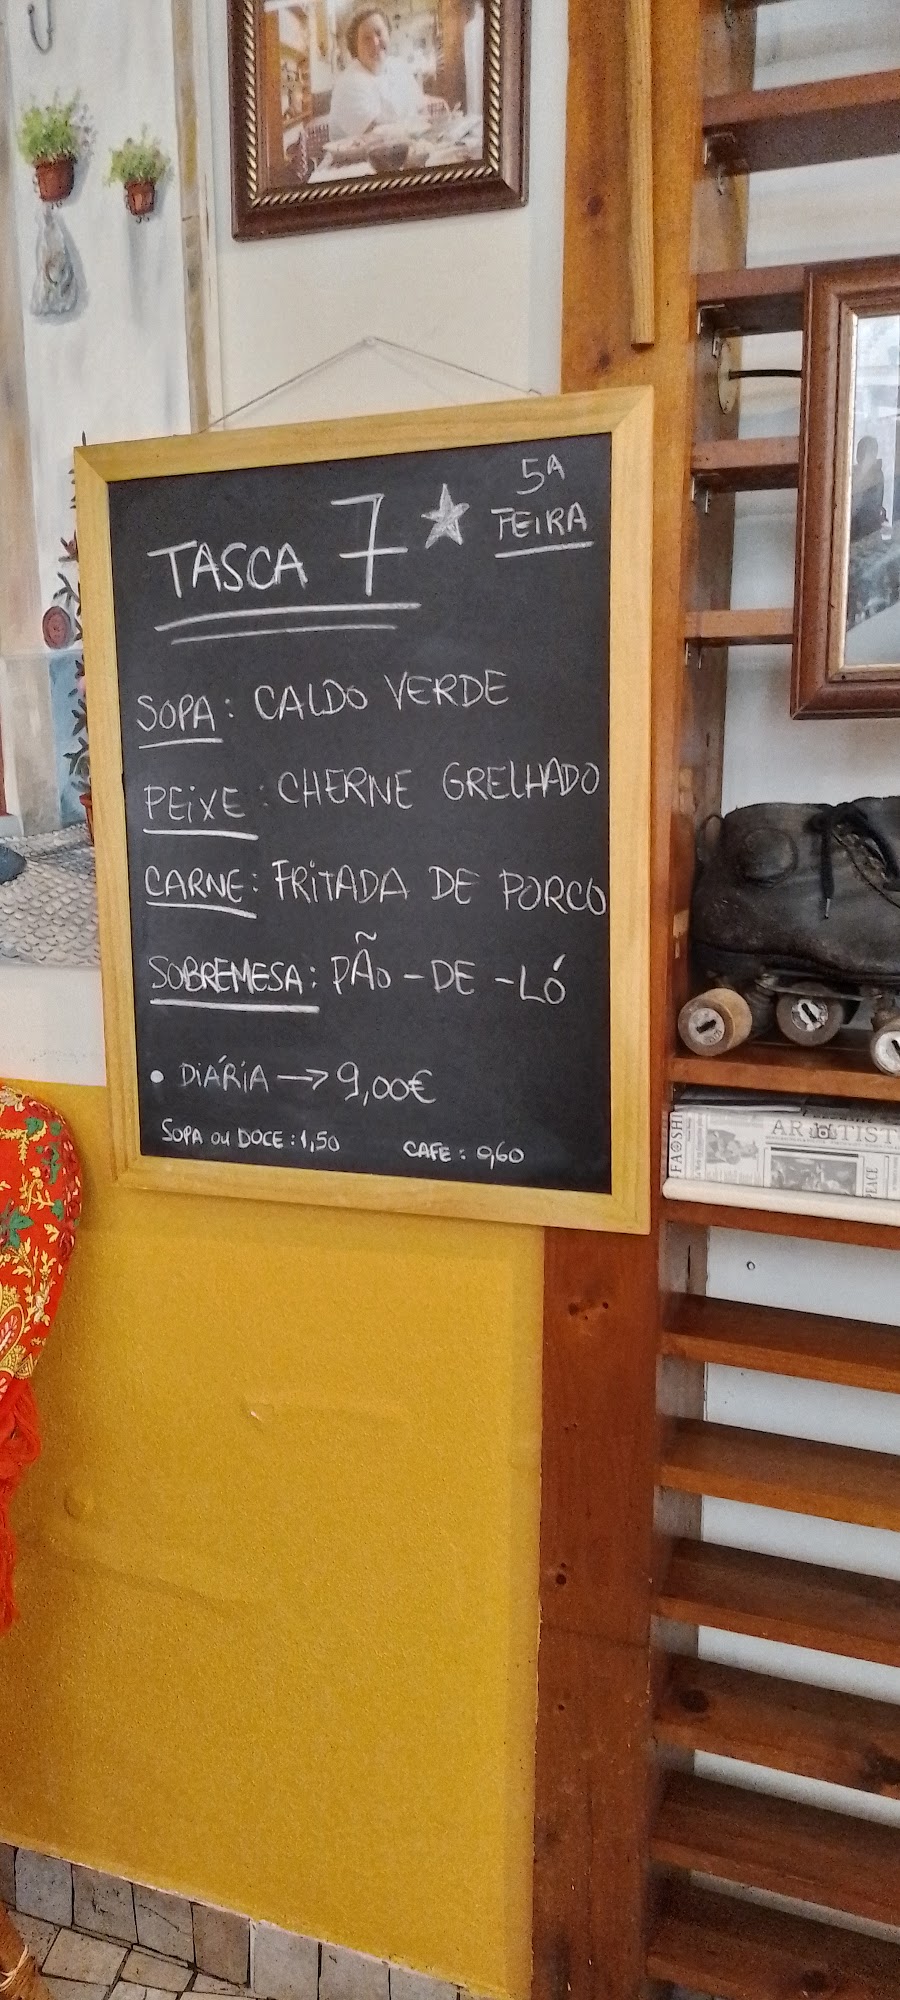 TASCA 7
5ª
FEIRA
SOPA: CALDO VERDE
PEIXE: CHERNE GRELHADO
CARNE: FRITADA DE PORCO
SOBREMESA: PÃO-DE-LÓ
• DIÁRIA → 9,00€
SOPA OU DOCE: 1,50 CAFE: 0,60
FAOSHI
ARTIST
PEACE